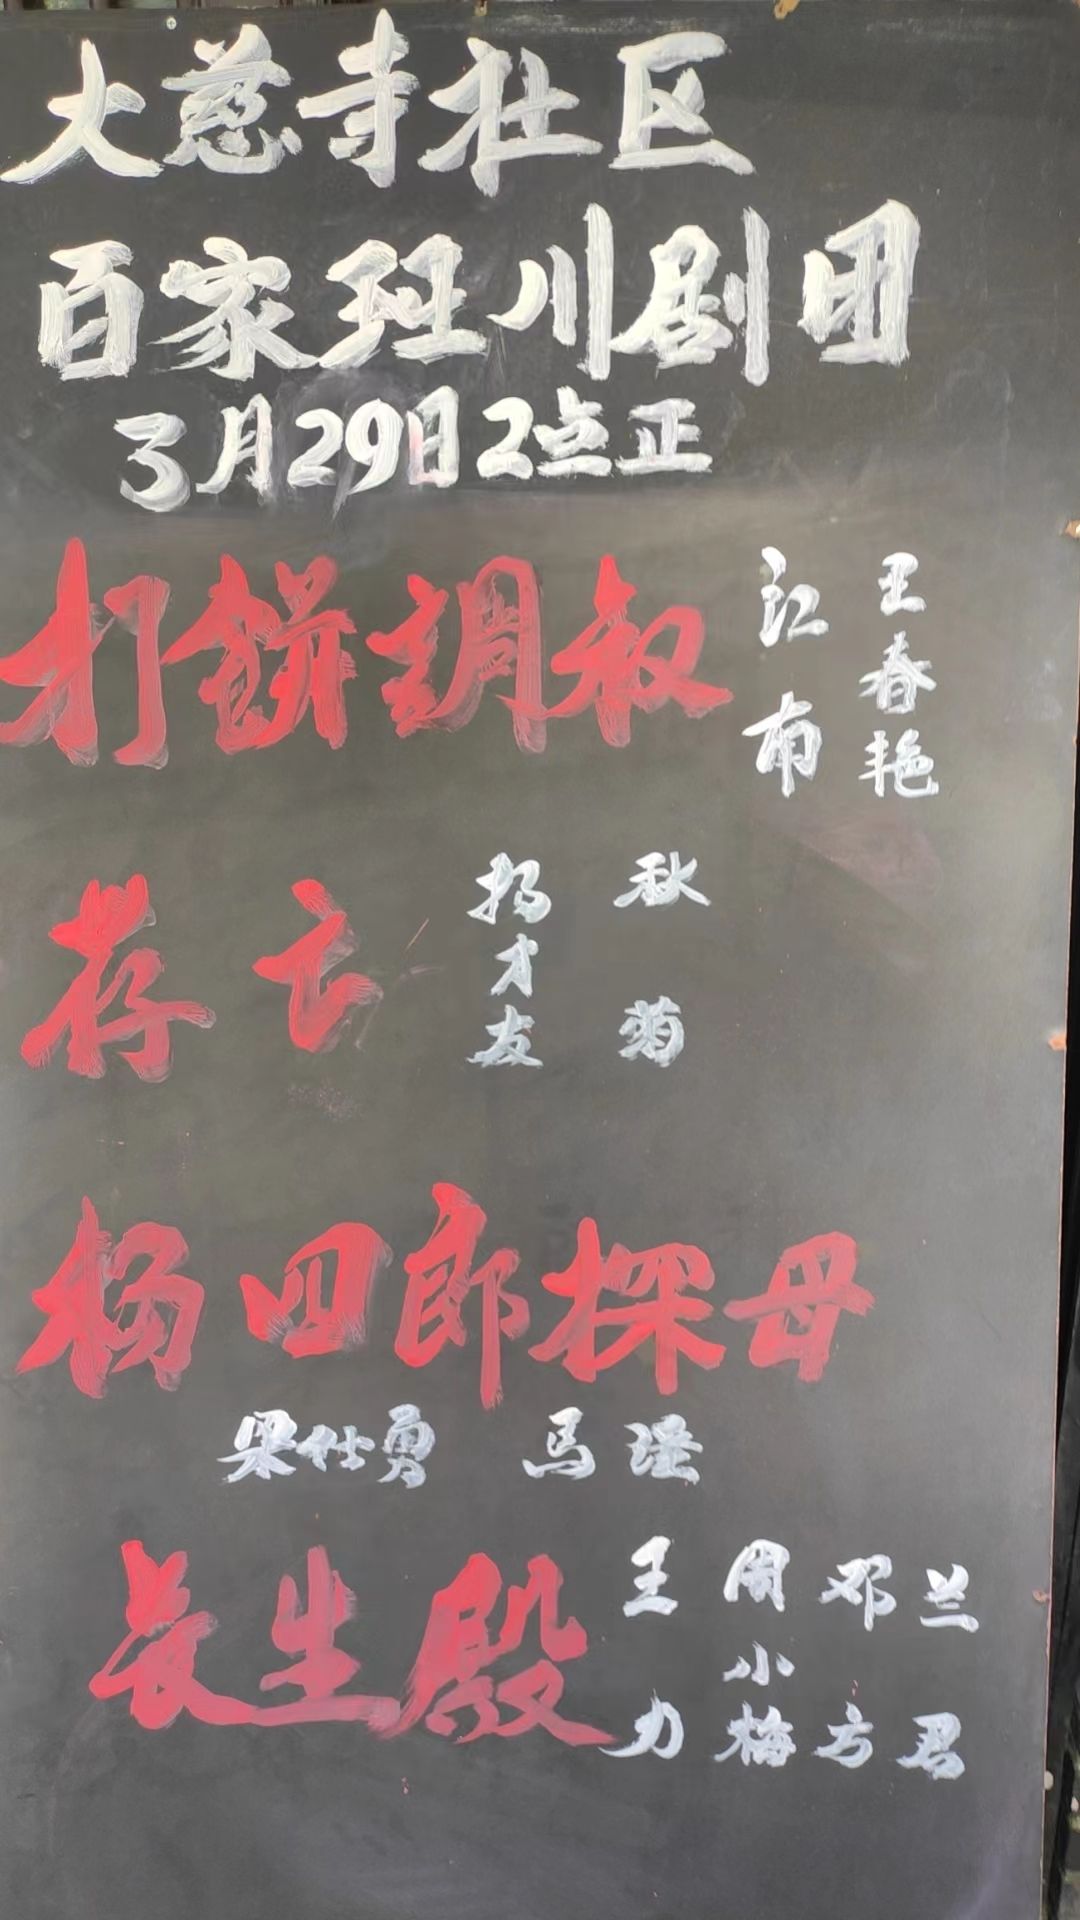 大慈寺社区
百家班川剧团
3月29日2点正
打餅調叔
江南
王春艳
荐云
扬才友
秋菊
杨四郎探母
梁仕勇 馬瑶
长生殿
王力
周小梅
邓方
兰君